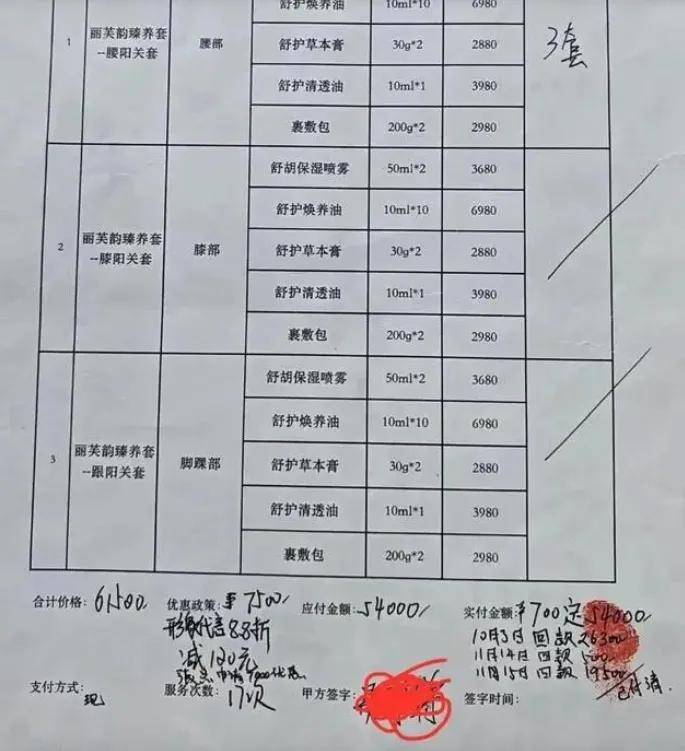 舒护焕养油 10ml*10 6980
1 丽芙韵臻养套--腰阳关套 腰部 舒护草本膏 30g*2 2880 3套
舒护清透油 10ml*1 3980
裹敷包 200g*2 2980
舒胡保湿喷雾 50ml*2 3680
舒护焕养油 10ml*10 6980
2 丽芙韵臻养套--膝阳关套 膝部 舒护草本膏 30g*2 2880
舒护清透油 10ml*1 3980
裹敷包 200g*2 2980
舒胡保湿喷雾 50ml*2 3680
舒护焕养油 10ml*10 6980
3 丽芙韵臻养套--跟阳关套 脚踝部 舒护草本膏 30g*2 2880
舒护清透油 10ml*1 3980
裹敷包 200g*2 2980
合计价格: 61500 优惠政策: ¥7500 应付金额: 54000 实付金额: ¥700定 54000
形象代言88折 10月3日 回款26300
减120元 11月14日 回款500
11月15日 回款19500
已付清
支付方式: 现 服务次数: 17次 甲方签字: 签字时间: